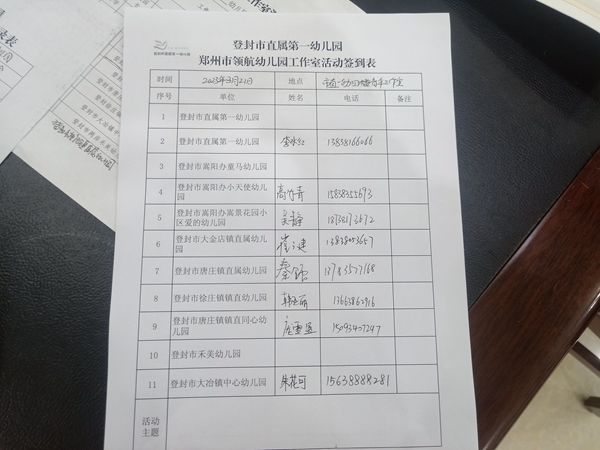 登封市直属第一幼儿园
郑州市领航幼儿园工作室活动签到表
时间 2023年3月21日 地点
序号 单位 姓名 电话 备注
1 登封市直属第一幼儿园
2 登封市直属第一幼儿园 13838166066
3 登封市嵩阳办童马幼儿园
4 登封市嵩阳办小天使幼儿园 高竹青 15838355693
5 登封市嵩阳办嵩景花园小区爱的幼儿园 吴静 18738173672
6 登封市大金店镇直属幼儿园 崔建 13838053657
7 登封市唐庄镇直属幼儿园 秦 13783527168
8 登封市徐庄镇镇直幼儿园 韩 丽 13663862916
9 登封市唐庄镇镇直同心幼儿园 15093407247
10 登封市禾美幼儿园
11 登封市大冶镇中心幼儿园 朱花可 15638888281
活动主题